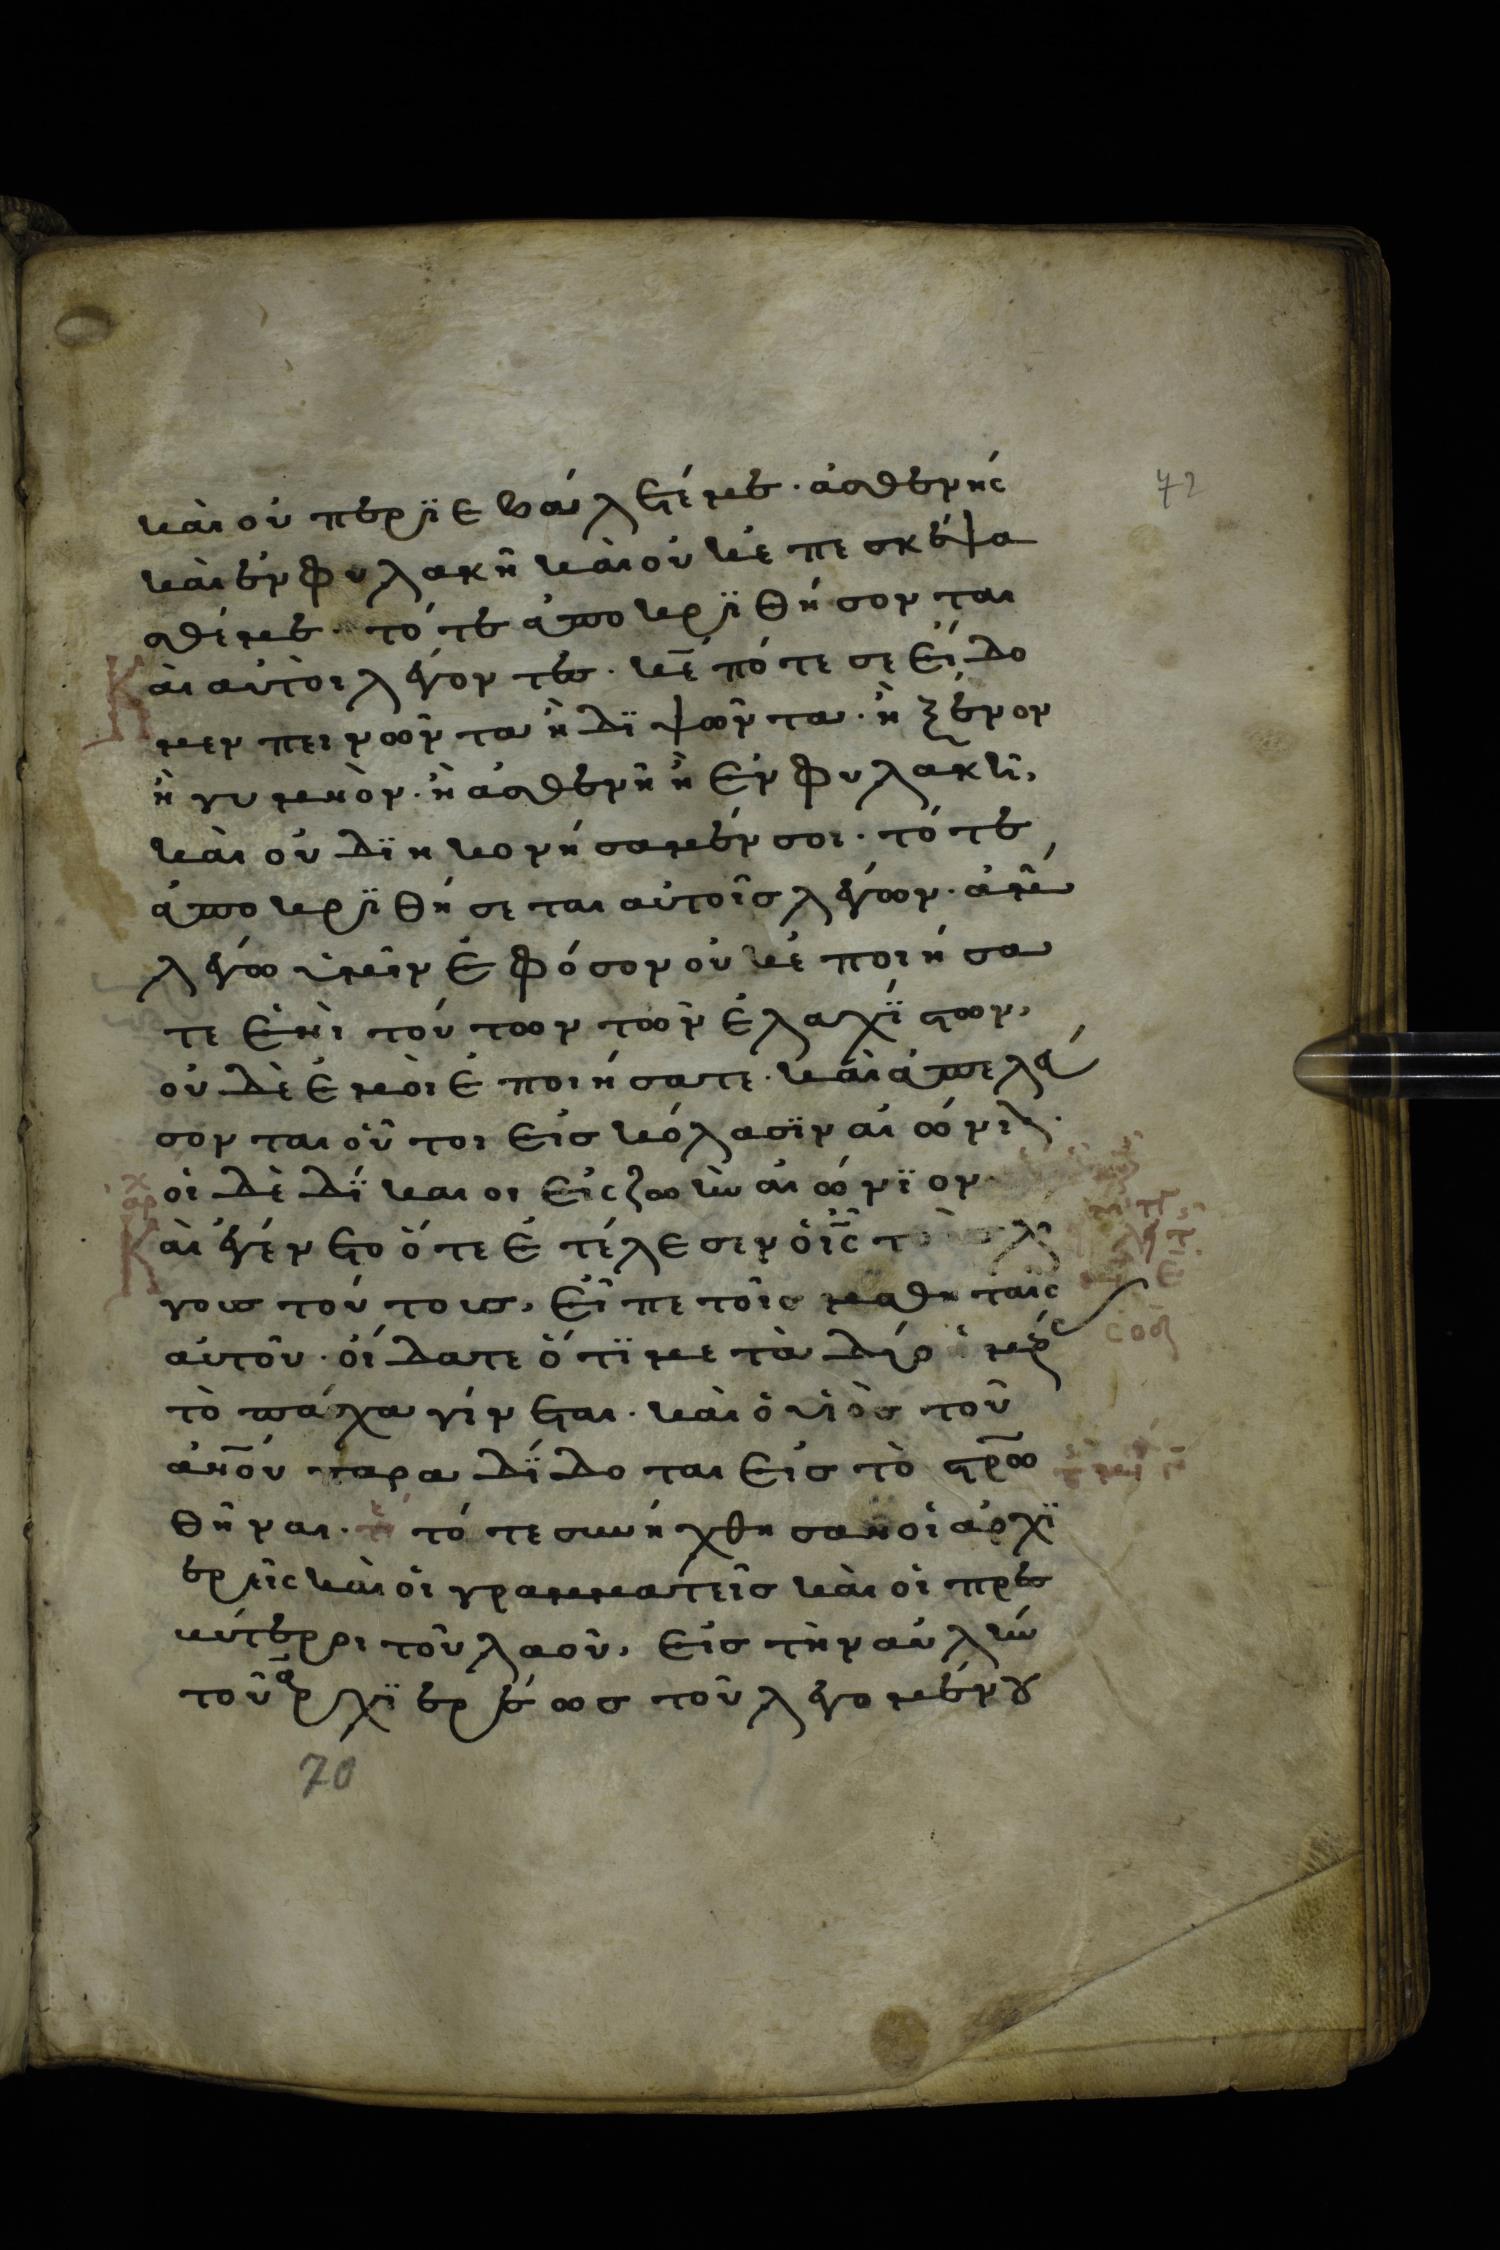 καὶ οὐ περϊεβάλετέ με· ἀσθενὴς
καὶ ἐν φυλακῆ καὶ οὐκ ἐπεσκέψα
σθέ με· τότε ἀποκρϊθήσονται
Καὶ αὐτοὶ λέγοντες· κ̅ε̅ πότε σε εἴδο
μεν πεινῶντα ἢ δϊψῶντα· ἢ ξένον
ἢ γυμνὸν· ἢ ἀσθενῆ ἢ ἐν φυλακῆ,
καὶ οὐ δϊηκονήσαμέν σοι· τότε
ἀποκρϊθήσεται αὐτοῖς λέγων· ἀμὴ
λέγω ὑμῖν ἐφόσον οὐκ ἐποιήσα
τε ἑνὶ τούτων τῶν ἐλαχΐστων,
οὐδὲ ἐμοὶ ἐποιήσατε· καὶ ἀπελεύ
σονται οὗτοι εἰς κόλασϊν αἰώνιον·
οἱ δὲ δΐκαιοι εἰς ζωὴν αἰώνϊον·
Καὶ ἐγένετο ὅτε ἐτέλεσεν ὁ ι̅ς̅ τοὺς λό
γους τούτους, εἶπε τοῖς μαθηταῖς
αὐτοῦ· οἴδατε ὅτϊ μετὰ δύο ἡμέρας
τὸ πάσχα γίνεται· καὶ ὁ υἱὸς τοῦ
ἀν̅ο̅ύ παραδΐδοται εἰς τὸ στ̅ρ̅ω
θῆναι· τότε συνήχθησαν οἱ ἀρχϊ
ερεῖς καὶ οἱ γραμματεῖς καὶ οἱ πρεσ
βύτεροι τοῦ λαοῦ, εἰς τὴν αὐλὴν
τοῦ ἀρχϊερέως τοῦ λεγομένου
72
70